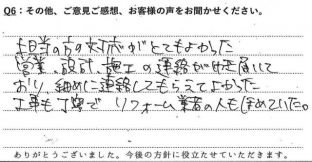 Q6：その他、ご意見ご感想、お客様の声をお聞かせください。
担当の方の対応がとてもよかった
営業、設計、施工の連絡が行き届いて
おり、細めに連絡してもらえてよかった
工事も丁寧で リフォーム業者の人もほめていた。
ありがとうございました。今後の方針に役立たせていただきます。